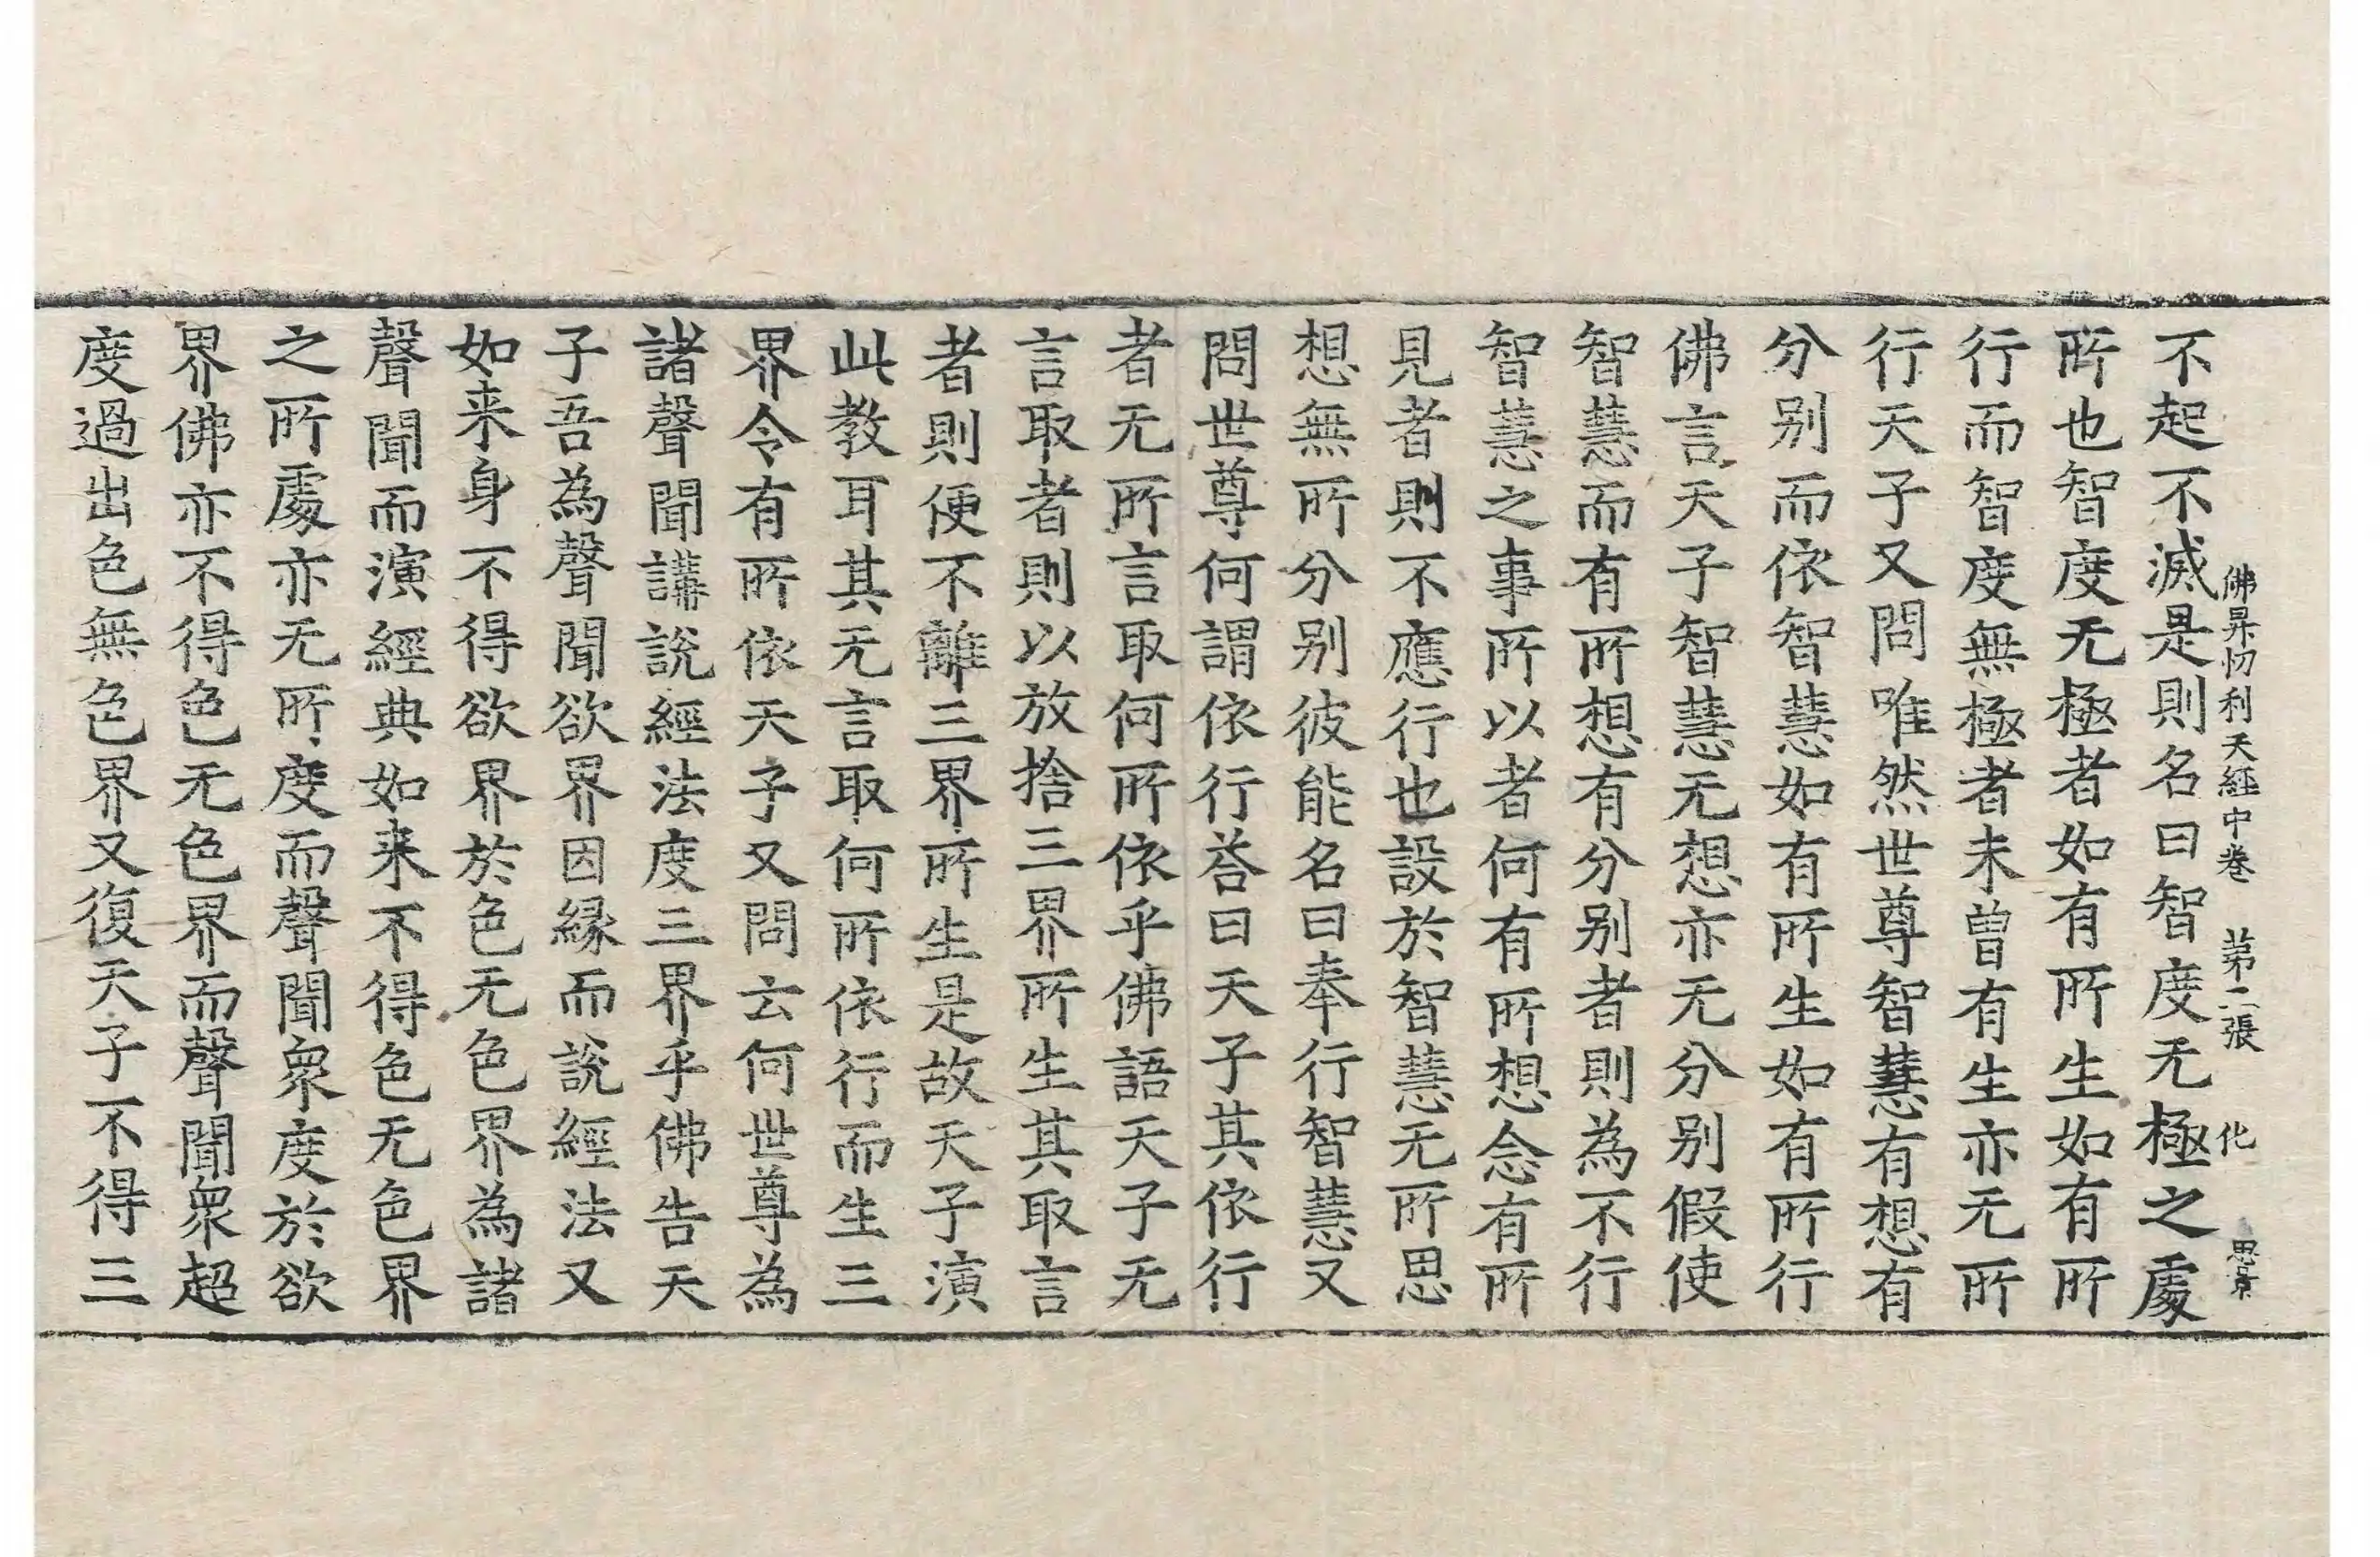 佛昇忉利天經中卷　第二張　化
不起不滅是則名曰智度无極之處
所也智度无極者如有所生如有所
行而智度無極者未曾有生亦无所
行天子又問唯然世尊智慧有想有
分别而依智慧如有所生如有所行
佛言天子智慧无想亦无分别假使
智慧而有所想有分别者則為不行
智慧之事所以者何有所想念有所
見者則不應行也設於智慧无所思
想無所分别彼能名曰奉行智慧又
問世尊何謂依行荅曰天子其依行
者无所言取何所依乎佛語天子无
言取者則以放捨三界所生其取言
者則便不離三界所生是故天子演
此教耳其无言取何所依行而生三
界令有所依天子又問云何世尊為
諸聲聞講說經法度三界乎佛告天
子吾為聲聞欲界因緣而說經法又
如来身不得欲界於色无色界為諸
聲聞而演經典如来不得色无色界
之所處亦无所度而聲聞衆度於欲
界佛亦不得色无色界而聲聞衆超
度過出色無色界又復天子不得三